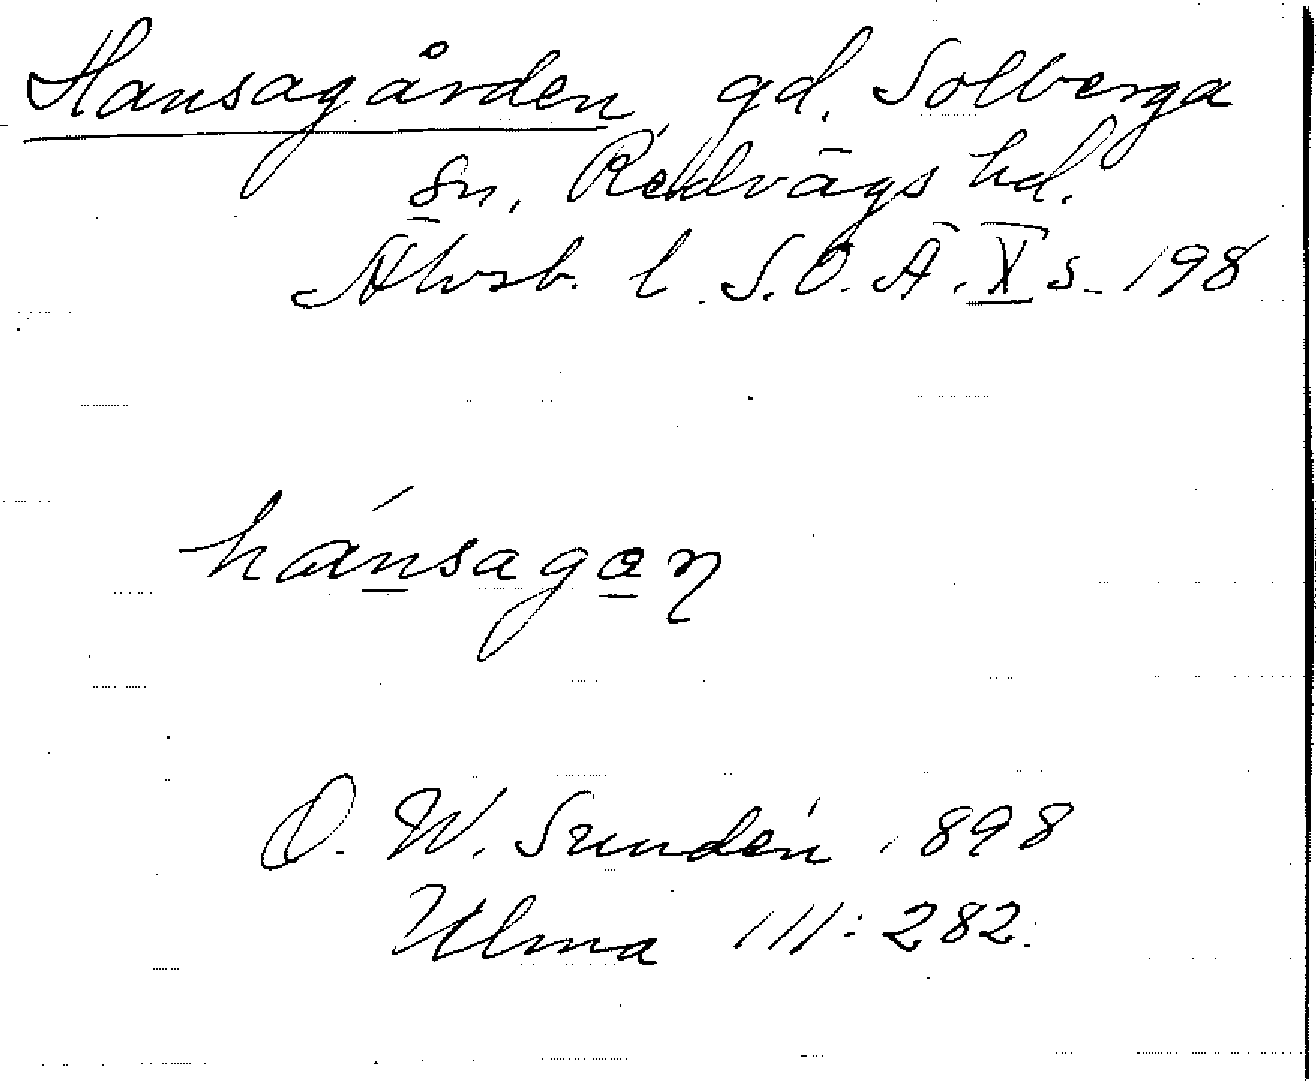 Hansagården, gd. Solberga
sn, Redvägs hd.
Älvsb. l. S.O.Ä. X s. 198
hánsagaη
D. W. Sundén 1898
Ulma 111:282.